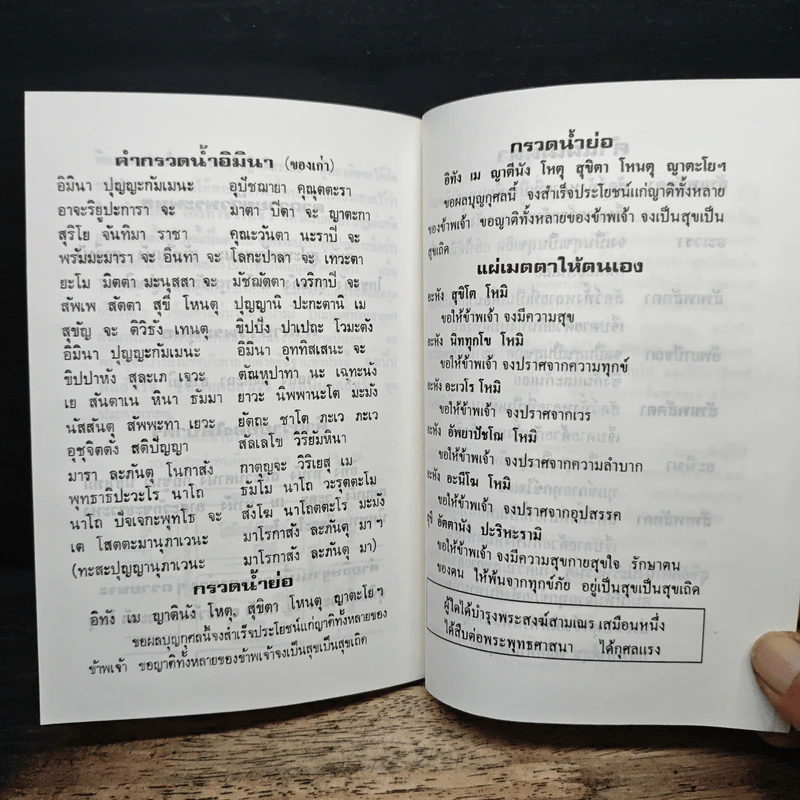 คำกรวดน้ำอิมินา (ของเก่า)
อิมินา ปุญญะกัมเมนะ อุปัชฌายา คุณุตตะรา
อาจะริยูปะการา จะ มาตา ปีตา จะ ญาตะกา
สุริโย จันทิมา ราชา คุณะวันตา นะราปี จะ
พรัมมะมารา จะ อินทา จะ โลกะปาลา จะ เทวะตา
ยะโม มิตตา มะนุสสา จะ มัชฌัตตา เวริกาปี จะ
สัพเพ สัตตา สุขี โหนตุ ปุญญานิ ปะกะตานิ เม
สุขัญ จะ ติวิธัง เทนตุ ขิปปัง ปาเปถะ โวมะตัง
อิมินา ปุญญะกัมเมนะ อิมินา อุททิสเสนะ จะ
ขิปปาหัง สุละเภ เจวะ ตัณหุปาทา นะ เฉทะนัง
เย สันตาเน หินา ธัมมา ยาวะ นิพพานะโต มะมัง
นัสสันตุ สัพพะทา เยวะ ยัตถะ ชาโต ภะเว ภะเว
อุชุจิตตัง สติปัญญา สัลเลโข วิริยัมหินา
มารา ละภันตุ โนกาสัง กาตุญจะ วิริเยสุ เม
พุทธาธิปะวะโร นาโถ ธัมโม นาโถ วะรุตตะโม
นาโถ ปัจเจกะพุทโธ จะ สังโฆ นาโถตตะโร มะมัง
เต โสตตะมานุภาเวนะ มาโรกาสัง ละภันตุ มาฯ
(ทะสะปุญญานุภาเวนะ มาโรกาสัง ละภันตุ มา)
กรวดน้ำย่อ
อิทัง เม ญาตินัง โหตุ, สุขิตา โหนตุ ญาตะโยฯ
ขอผลบุญกุศลนี้จงสำเร็จประโยชน์แก่ญาติทั้งหลายของ
ข้าพเจ้า ขอญาติทั้งหลายของข้าพเจ้าจงเป็นสุขเป็นสุขเถิด
กรวดน้ำย่อ
อิทัง เม ญาตีนัง โหตุ สุขิตา โหนตุ ญาตะโยฯ
ขอผลบุญกุศลนี้ จงสำเร็จประโยชน์แก่ญาติทั้งหลาย
ของข้าพเจ้า ขอญาติทั้งหลายของข้าพเจ้า จงเป็นสุขเป็น
สุขเถิด
แผ่เมตตาให้ตนเอง
อะหัง สุขิโต โหมิ
ขอให้ข้าพเจ้า จงมีความสุข
อะหัง นิททุกโข โหมิ
ขอให้ข้าพเจ้า จงปราศจากความทุกข์
อะหัง อะเวโร โหมิ
ขอให้ข้าพเจ้า จงปราศจากเวร
อะหัง อัพยาปัชโฌ โหมิ
ขอให้ข้าพเจ้า จงปราศจากความลำบาก
อะหัง อะนีโฆ โหมิ
ขอให้ข้าพเจ้า จงปราศจากอุปสรรค
สุขี อัตตานัง ปะริหะรามิ
ขอให้ข้าพเจ้า จงมีความสุขกายสุขใจ รักษาตน
ของตน ให้พ้นจากทุกข์ภัย อยู่เป็นสุขเป็นสุขเถิด
ผู้ใดได้บำรุงพระสงฆ์สามเณร เสมือนหนึ่ง
ได้สืบต่อพระพุทธศาสนา ได้กุศลแรง